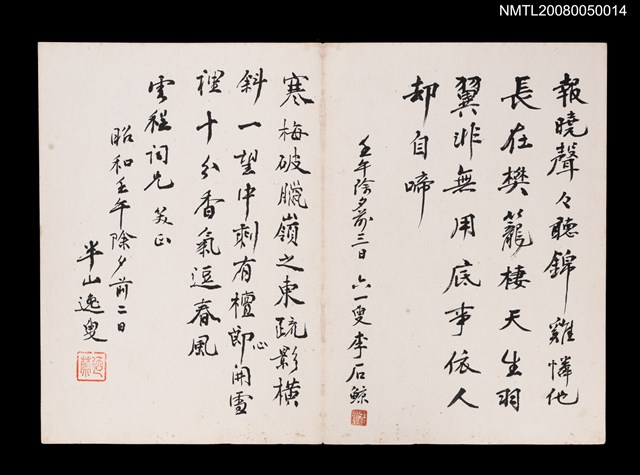 NMTL20080050014
報曉聲々聽錦雞憐他
長在樊籠棲天生羽
翼非無用底事依人
却自啼
壬午除夕前三日 六一叟李石鯨
寒梅破臘嶺之東疏影橫
斜一望中刺有檀心即開雪
裡十分香氣逗春風
雲程詞兄 笑正
昭和壬午除夕前二日
半山逸叟